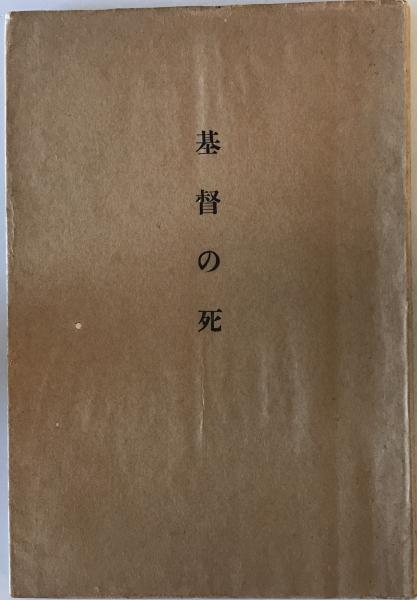 基督の死